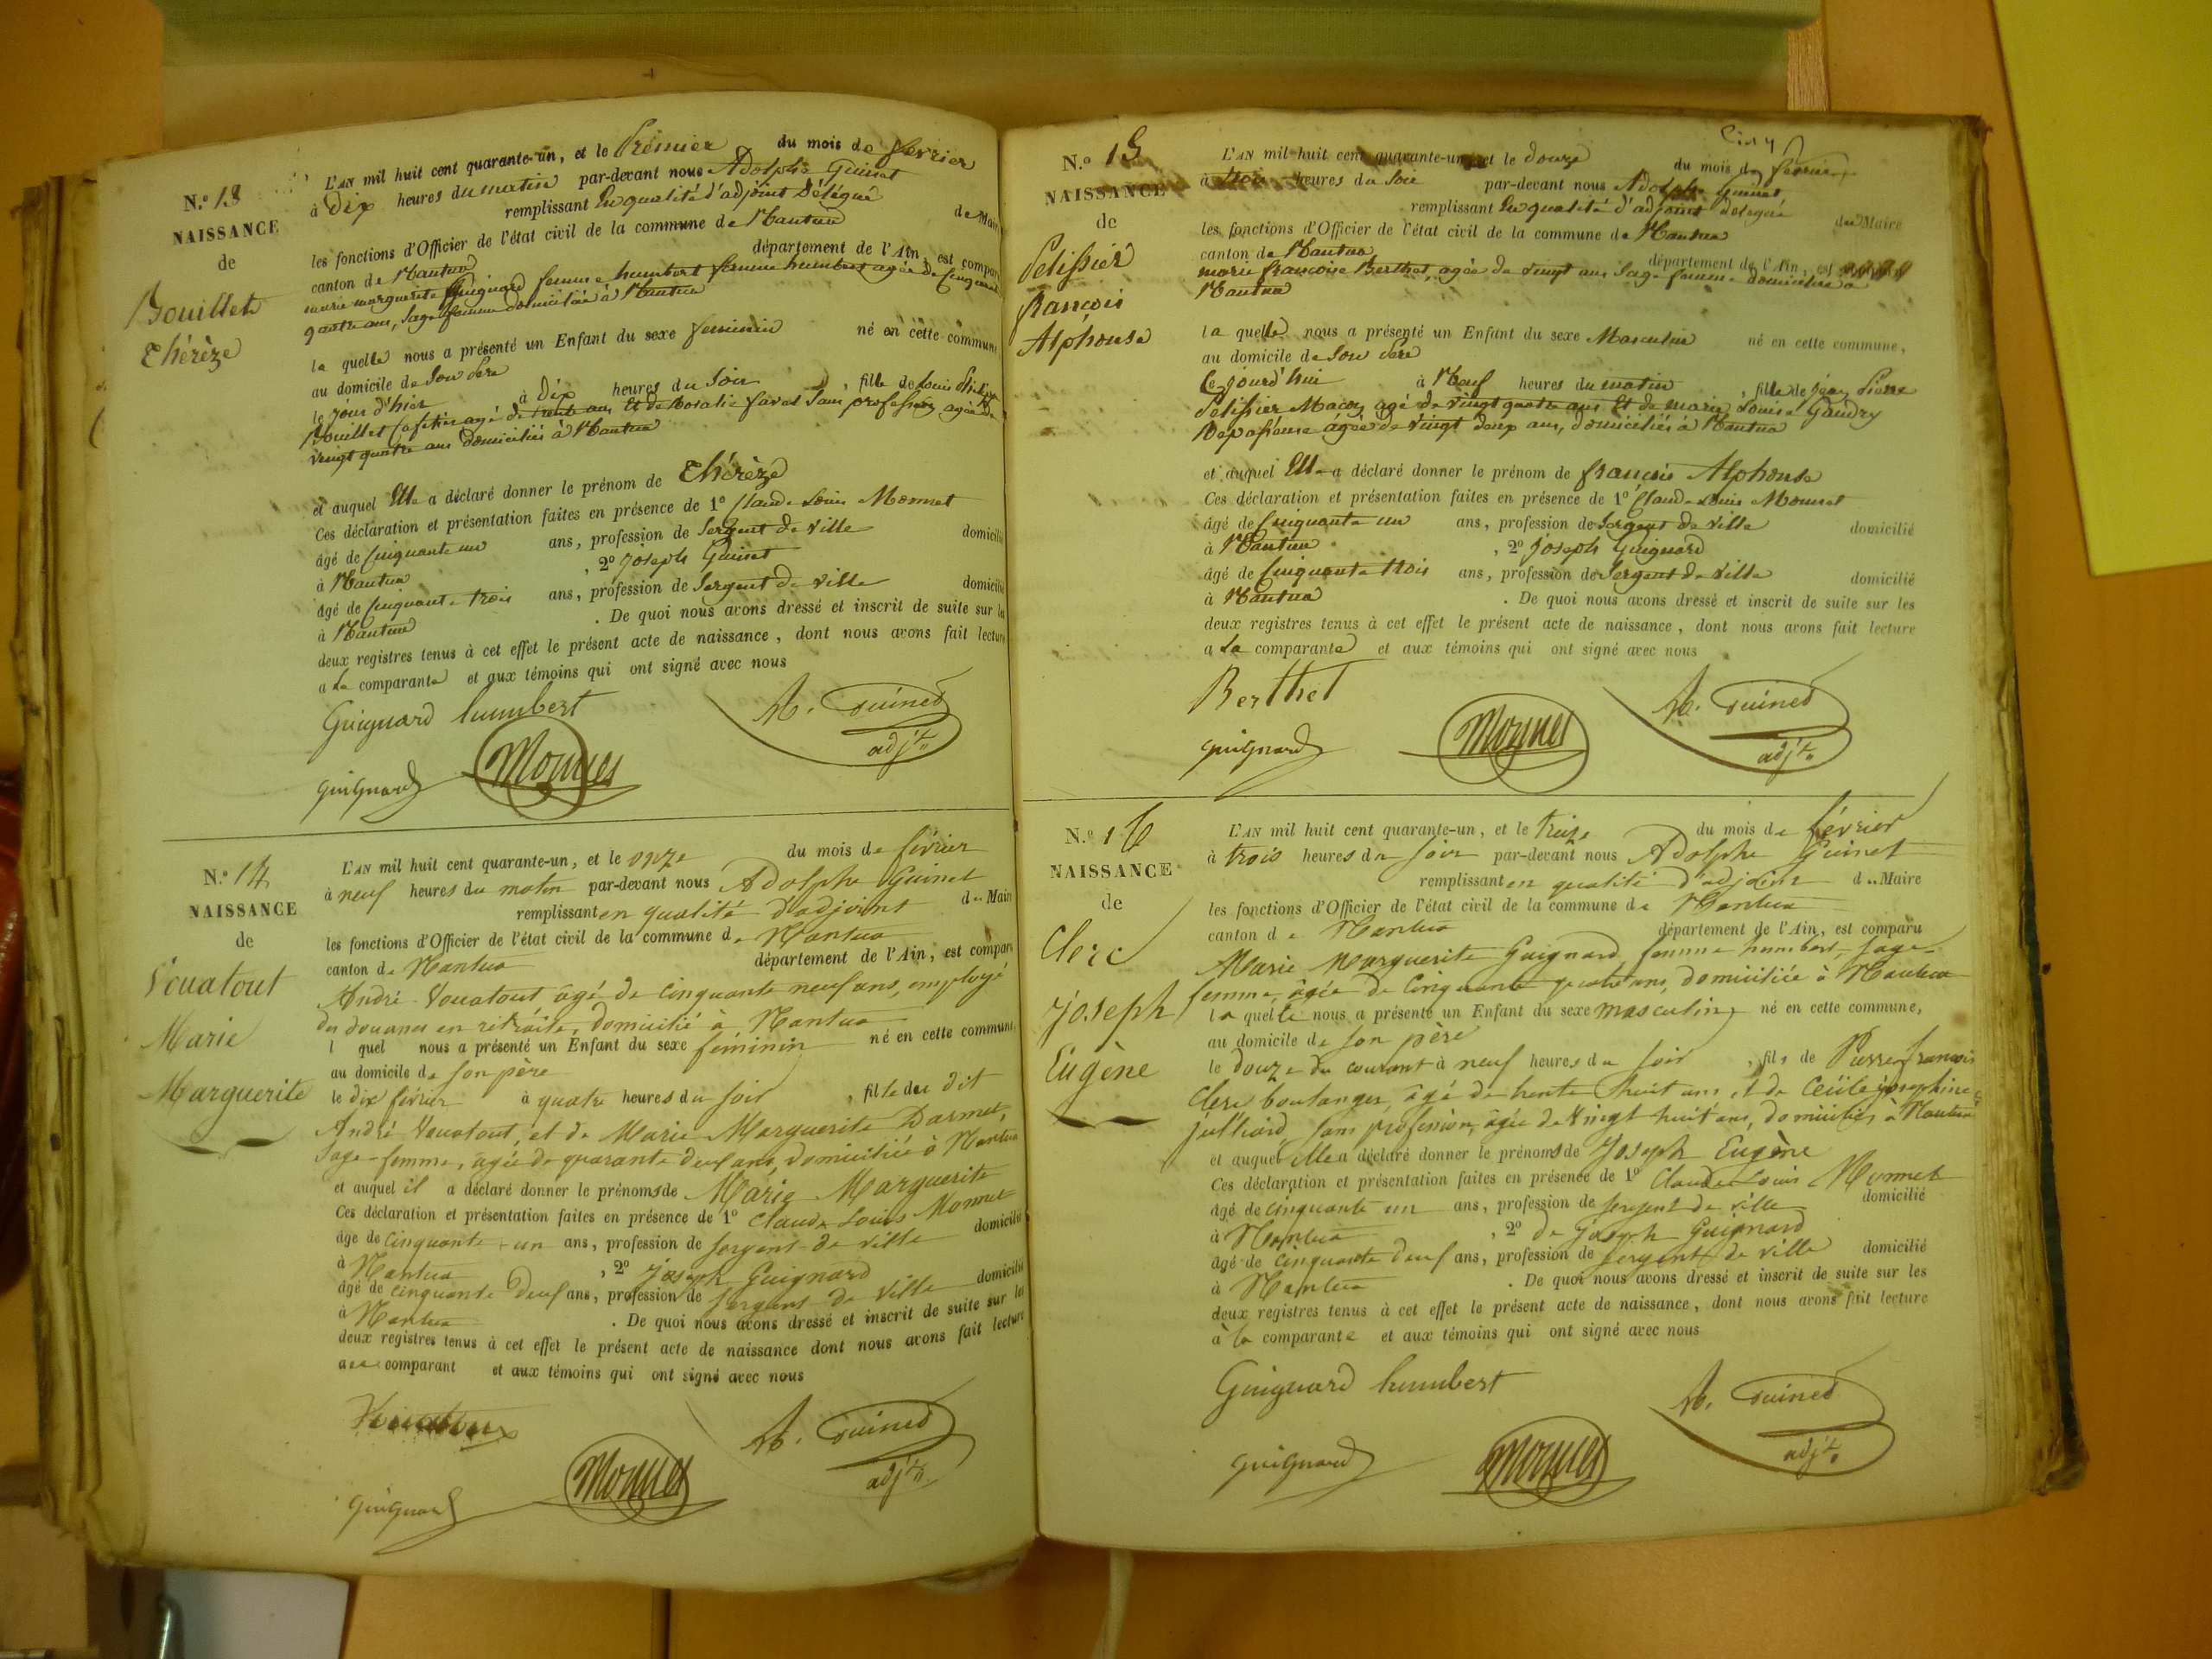 N.º 13
NAISSANCE
de
Bouillet
Thérèze
L'AN mil huit cent quarante-un, et le Premier du mois de février
à Dix heures du matin par-devant nous Adolphe Guinet
remplissant En qualité d'adjoint Délégué de Mair
les fonctions d'Officier de l'état civil de la commune de Nantua
canton de Nantua département de l'Ain, est compar
marie marguerite Guignard femme humbert femme humbert agée de Cinquante
quatre ans, Sage femme domiciliée à Nantua
la quelle nous a présenté un Enfant du sexe feminin né en cette commune
au domicile de Son Père
le jour d'hier à Dix heures du Soir, fille de Louis Philippe
Bouillet Cafetier agé de trente ans Et de Rosalie favel Sans profession agée de
vingt quatre ans domiciliés à Nantua
et auquel Elle a déclaré donner le prénom de Thérèze
Ces déclaration et présentation faites en présence de 1º Claude Louis Monnet
âgé de Cinquante un ans, profession de Sergent de ville domicilié
à Nantua, 2º Joseph Guinet
âgé de Cinquante trois ans, profession de Sergent de ville domicilié
à Nantua. De quoi nous avons dressé et inscrit de suite sur le
deux registres tenus à cet effet le présent acte de naissance, dont nous avons fait lecture
a La comparante et aux témoins qui ont signé avec nous
Guignard humbert
A. Guinet
adj.t
guignard
Monnet
N.º 14
NAISSANCE
de
Vouatout
Marie
Marguerite
L'AN mil huit cent quarante-un, et le onze du mois de février
à neuf heures du matin par-devant nous Adolphe Guinet
remplissant en qualité d'adjoint d.. Mair
les fonctions d'Officier de l'état civil de la commune de Nantua
canton de Nantua département de l'Ain, est compar
André Vouatout âgé de cinquante neuf ans, employé
des douanes en retraite, domicilié à Nantua
l quel nous a présenté un Enfant du sexe féminin né en cette commune
au domicile de son père
le dix février à quatre heures du soir, fille du dit
André Vouatout, et de Marie Marguerite Darmet,
Sage-femme, agée de quarante deux ans, domiciliée à Nantua
et auquel il a déclaré donner le prénoms de Marie Marguerite
Ces déclaration et présentation faites en présence de 1º Claude Louis Monnet
âge de cinquante-un ans, profession de sergent de ville domicilié
à Nantua, 2º Joseph Guignard
âgé de cinquante deux ans, profession de sergent de ville domicilié
à Nantua. De quoi nous avons dressé et inscrit de suite sur les
deux registres tenus à cet effet le présent acte de naissance dont nous avons fait lecture
au comparant et aux témoins qui ont signé avec nous
A. Guinet
adj.t
guignard
Monnet
N.º 15
NAISSANCE
de
Pelissier
françois
Alphonse
L'AN mil huit cent quarante-un et le douze du mois de février
à trois heures du Soir par-devant nous Adolphe Guinet
remplissant En qualité d'adjoint délégué du Maire
les fonctions d'Officier de l'état civil de la commune de Nantua
canton de Nantua département de l'Ain, est
marie françoise Berthet, agée de vingt ans Sage femme domiciliée a
Nantua
la quelle nous a présenté un Enfant du sexe Masculin né en cette commune,
au domicile de Son Père
Ce jourd'hui à Neuf heures du matin, fille de Jean Pierre
Pelissier Maçon, agé de vingt quatre ans Et de marie Louise Gaudry
Repasseuse agée de vingt deux ans, domiciliés à Nantua
et auquel Elle a déclaré donner le prénom de françois Alphonse
Ces déclaration et présentation faites en présence de 1º Claude Louis Monnet
âgé de Cinquante un ans, profession de Sergent de ville domicilié
à Nantua, 2º Joseph Guignard
âgé de Cinquante trois ans, profession de Sergent de ville domicilié
à Nantua. De quoi nous avons dressé et inscrit de suite sur les
deux registres tenus à cet effet le présent acte de naissance, dont nous avons fait lecture
a La comparante et aux témoins qui ont signé avec nous
Berthet
A. Guinet
adj.t
guignard
Monnet
N.º 16
NAISSANCE
de
Clerc
joseph
Eugène
L'AN mil huit cent quarante-un, et le treize du mois de février
à trois heures du soir par-devant nous Adolphe Guinet
remplissant en qualité d'adjoint d.. Maire
les fonctions d'Officier de l'état civil de la commune de Nantua
canton de Nantua département de l'Ain, est comparu
Marie Marguerite Guignard, femme humbert, sage-
femme, âgée de cinquante quatre ans, domiciliée à Nantua
la quelle nous a présenté un Enfant du sexe masculin né en cette commune,
au domicile de son père
le douze du courant à neuf heures du soir, fils de Pierre françois
Clerc boulanger, âgé de trente huit ans, et de Cécile josephine
Julliard, sans profession, agée de vingt huit ans, domiciliés à Nantua
et auquel elle a déclaré donner le prénoms de Joseph Eugène
Ces déclaration et présentation faites en présence de 1º Claude Louis Monnet
âgé de cinquante un ans, profession de sergent de ville domicilié
à Nantua, 2º de joseph Guignard
âgé de cinquante deux ans, profession de sergent de ville domicilié
à Nantua. De quoi nous avons dressé et inscrit de suite sur les
deux registres tenus à cet effet le présent acte de naissance, dont nous avons fait lecture
à la comparante et aux témoins qui ont signé avec nous
Guignard humbert
A. Guinet
adj.t
guignard
Monnet